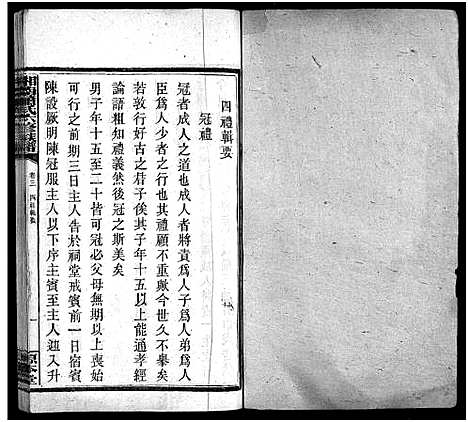 四禮輯要
冠禮
冠者成人之道也成人者將責爲人子爲人弟爲人
臣爲人少者之行也其禮顧不重歟今世久不舉矣
若敦行好古之君子俟其子年十五以上能通孝經
論語粗知禮義然後冠之斯美矣
男子年十五至二十皆可冠必父母無期以上喪始
可行之前期三日主人告於祠堂戒賓前一日宿賓
陳設厥明陳冠服主人以下序主賓至主人迎入升
卷三
四禮輯要
一